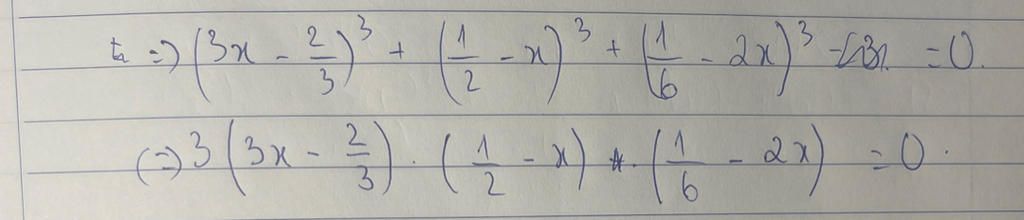 => (3x - 2/3)^3 + (1/2 - x)^3 + (1/6 - 2x)^3 = 0.
(=) 3 (3x - 2/3) . (1/2 - x) . (1/6 - 2x) = 0.